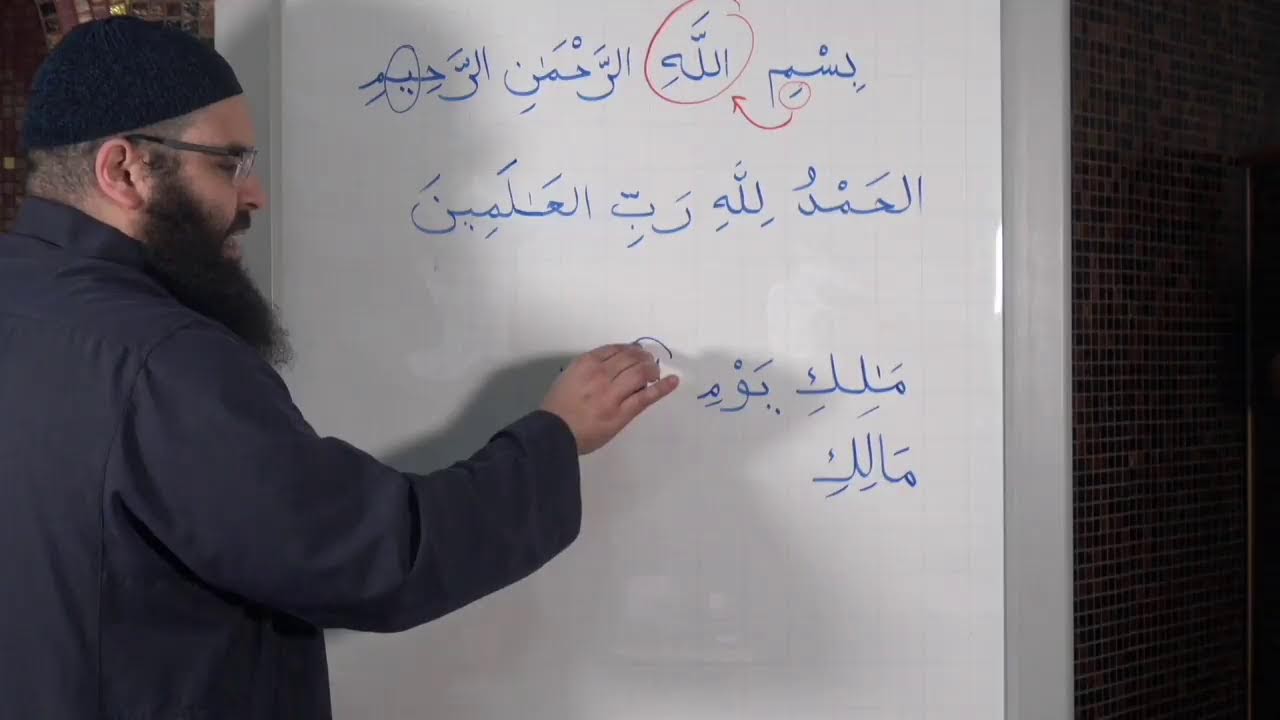 بِسْمِ اللَّهِ الرَّحْمَٰنِ الرَّحِيمِ
الحَمْدُ لِلَّهِ رَبِّ العَـٰلَمِينَ
مَـٰلِكِ يَوْمِ
مَالِكِ